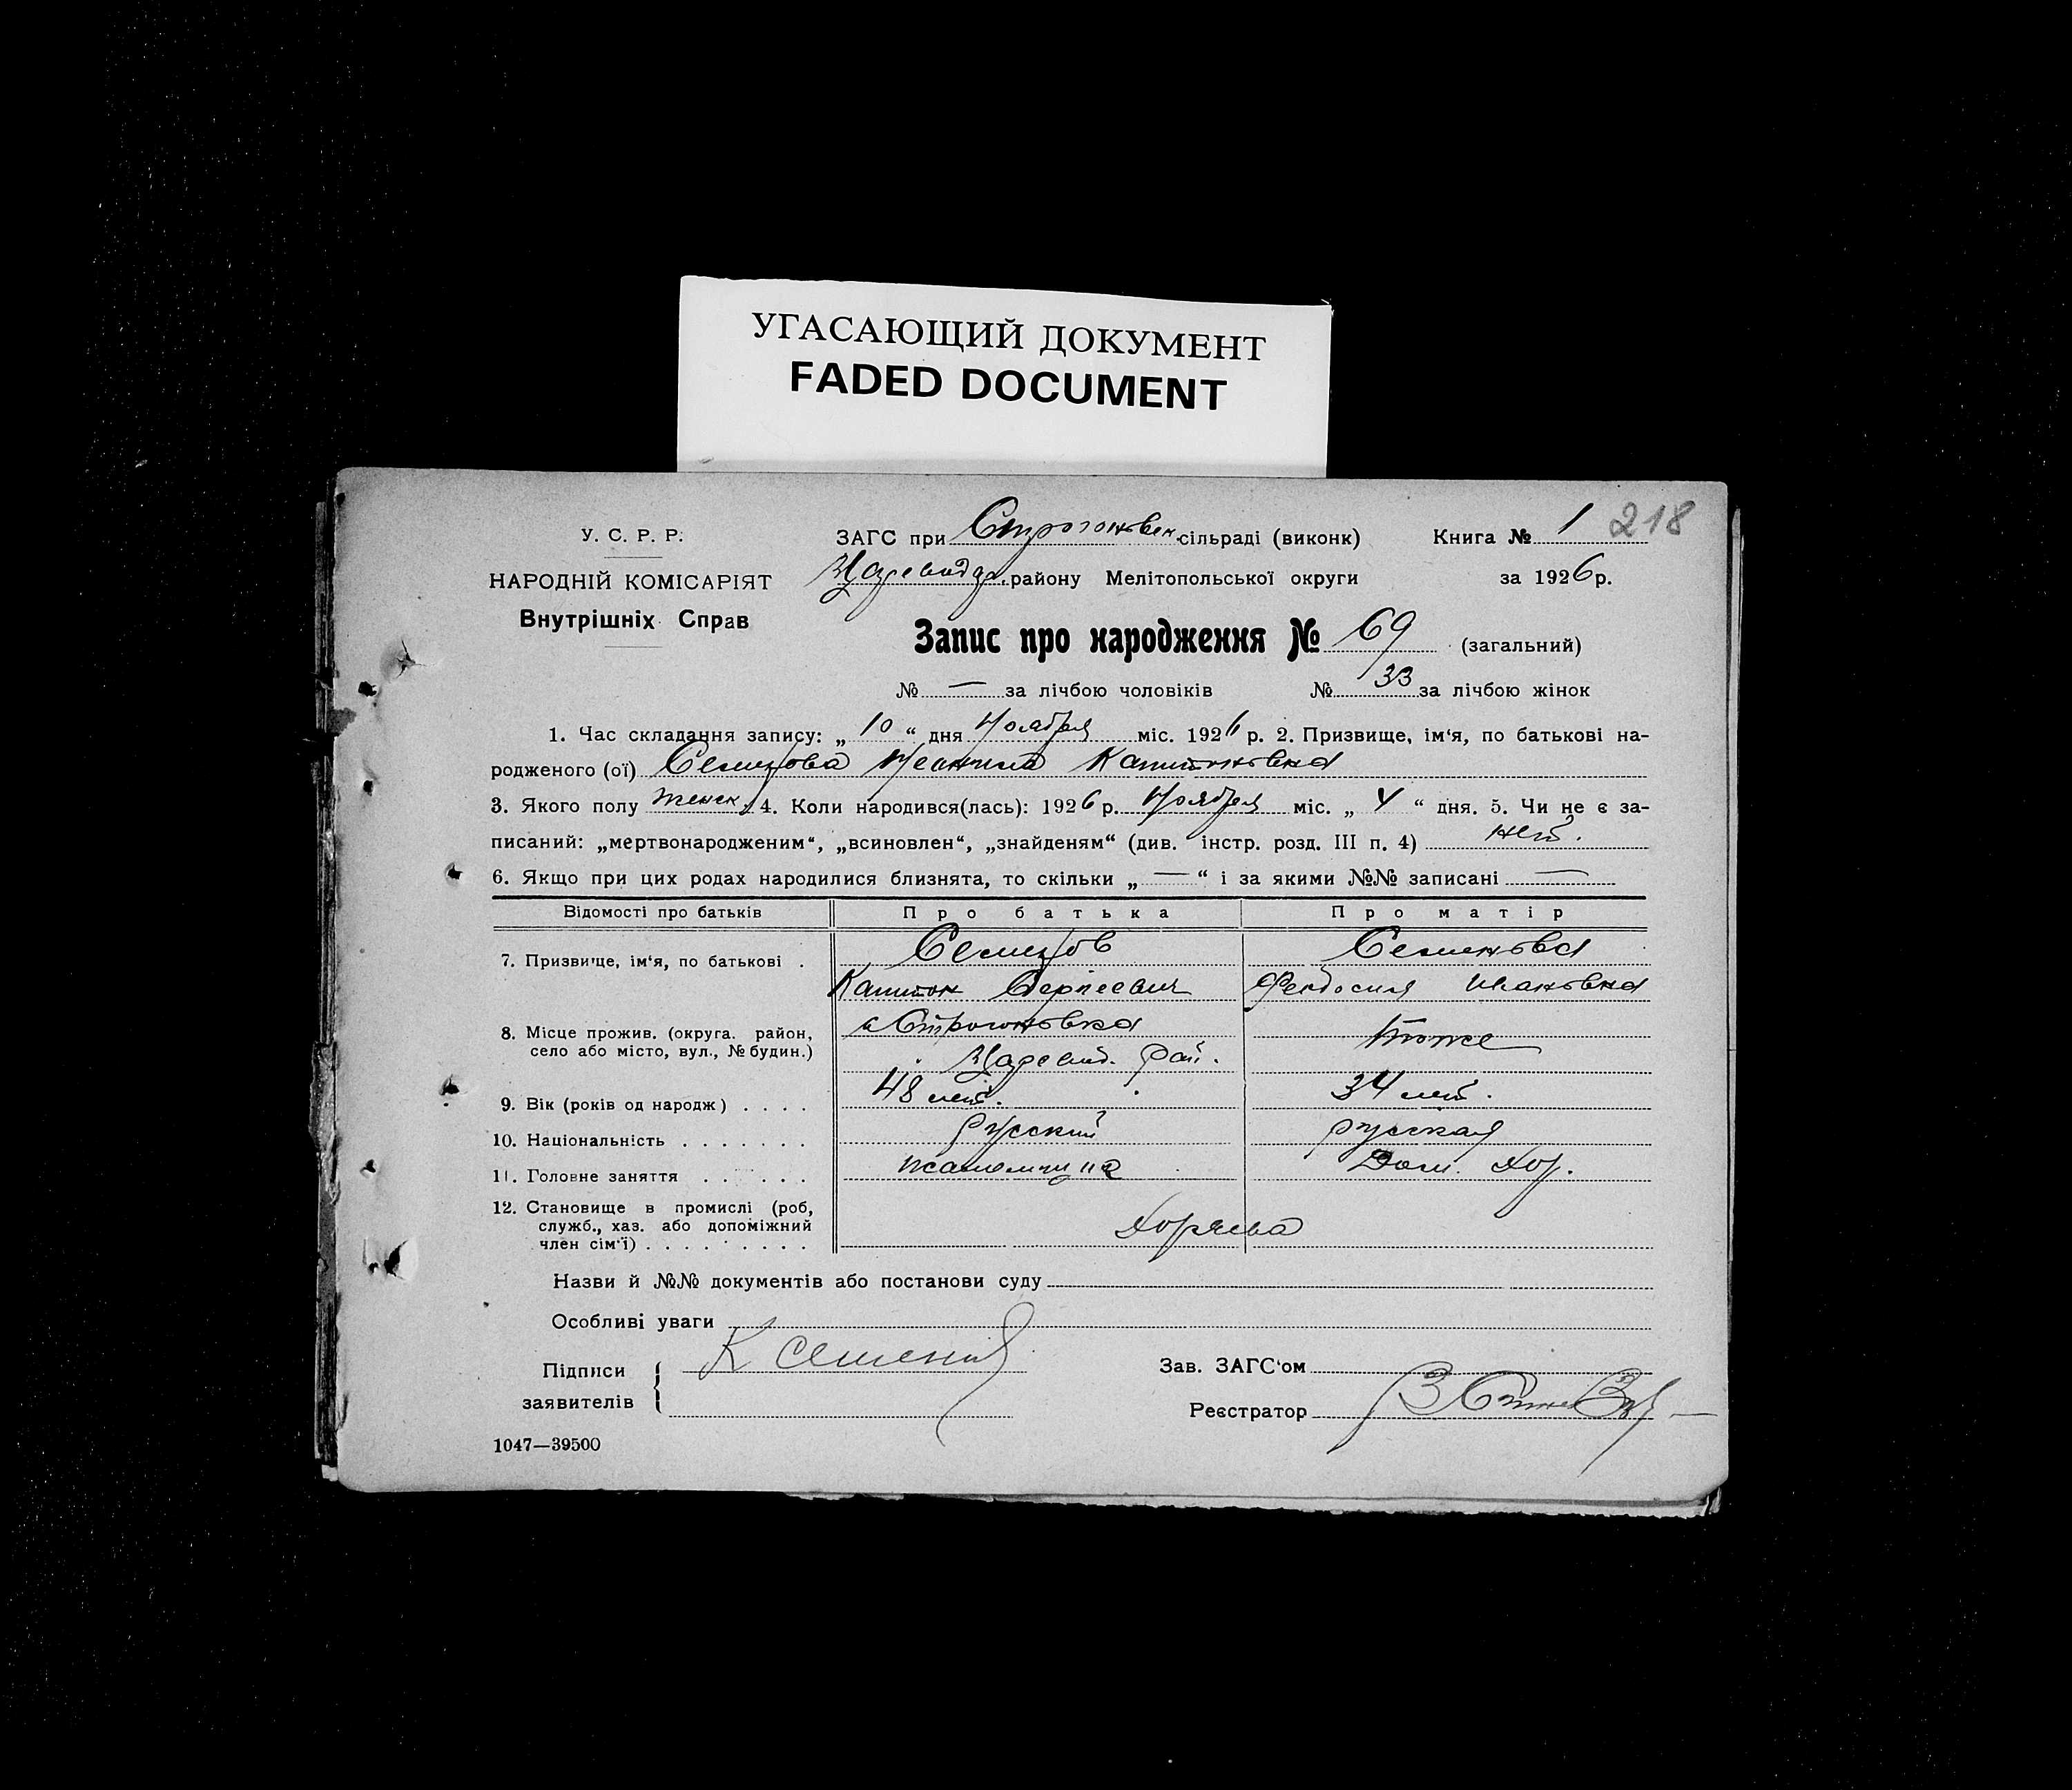 УГАСАЮЩИЙ ДОКУМЕНТ
FADED DOCUMENT
У. С. Р. Р. ЗАГС при Строгоновск. сільраді (виконк) Книга № 1 218
НАРОДНІЙ КОМІСАРІЯТ району Мелітопольської округи за 1926 р.
Внутрішніх Справ
Запис про народження № 69 (загальний)
№ — за лічбою чоловіків № 33 за лічбою жінок
1. Час складання запису: „ 10 “ дня Ноября міс. 1926 р. 2. Призвище, ім‘я, по батькові на-
родженого (ої) Капитоновна
3. Якого полу женск. 4. Коли народився(лась): 1926 р. Ноября міс. „ 4 “ дня. 5. Чи не є за-
писаний: „мертвонародженим“, „всиновлен“, „знайденям“ (див. інстр. розд. III п. 4) нет.
6. Якщо при цих родах народилися близнята, то скільки „ — “ і за якими №№ записані —
Відомості про батьків Про батька Про матір
7. Призвище, ім‘я, по батькові . Семенова
Капитон Сергеевич Феодосия Ивановна
8. Місце прожив. (округа. район, с Строгоновка тоже
село або місто, вул., № будин.) рай.
9. Вік (років од народж) . . . . 48 лет. 34 лет.
10. Національність . . . . . . . Русский русская
11. Головне заняття . . . . . . Дом. хоз.
12. Становище в промислі (роб,
служб., хаз. або допоміжний хозяева
член сім‘ї) . . . . . . . . .
Назви й №№ документів або постанови суду
Особливі уваги
Підписи К Зав. ЗАГС‘ом
заявителів Реєстратор
1047—39500